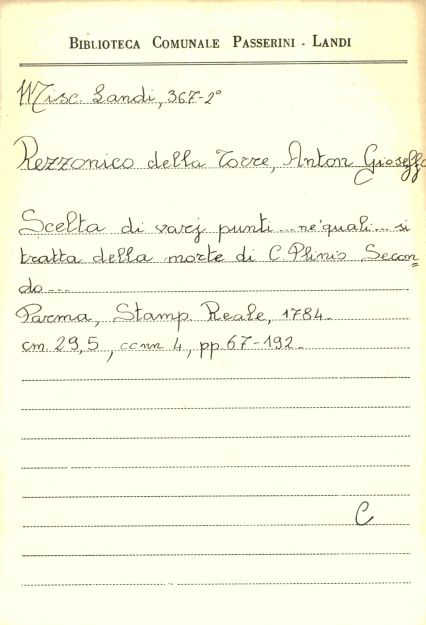 BIBLIOTECA COMUNALE PASSERINI - LANDI
Misc. Landi, 367-2°
Rezzonico della Torre, Anton Gioseffo
Scelta di varj punti ... ne' quali ... si
tratta della morte di C. Plinio Secon=
do ...
Parma, Stamp. Reale, 1784.
cm. 29,5, ccnn 4, pp 67-192.
C